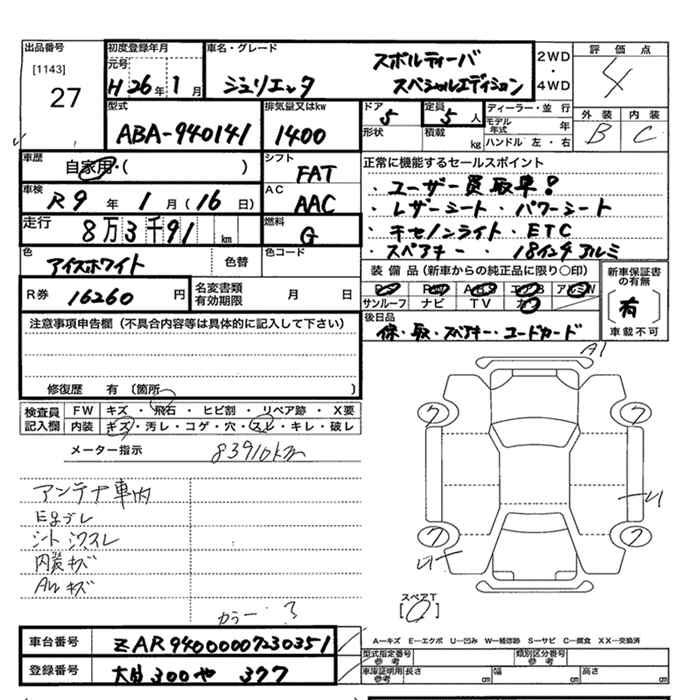 出品番号 初度登録年月 車名・グレード 2WD・4WD 評価点
[1143] 元号 スポルティーバ 4
27 H26年1月 ジュリエッタ スペシャルエディション
外装 内装
B C
型式 排気量又はkw ドア 定員 ディーラー・並行
ABA-940141 1400 5 5人 モデル年式 年
形状 積載 kg ハンドル 左・右
車歴 シフト 正常に機能するセールスポイント
自家用・( ) FAT ・ユーザー買取車!
車検 AC ・レザーシート・パワーシート
R9年1月(16日) AAC ・キセノンライト・ETC
走行 燃料 ・スペアキー・18インチアルミ
8万3千91km G
色 色替 色コード 装備品(新車からの純正品に限り○印) 新車保証書の有無
アイスホワイト エアB アルミW
R券 16260円 名変書類有効期限 月 日 サンルーフ ナビ TV 〔有〕
車載不可
注意事項申告欄(不具合内容等は具体的に記入して下さい) 後日品
保・取・スペアキー・コードカード
修復歴 有 〔箇所
検査員記入欄 FW キズ・飛石・ヒビ割・リペア跡・X要
内装 キズ・汚レ・コゲ・穴・スレ・キレ・破レ
メーター指示 83910km
A1
アンテナ車内
シートシワスレ
内装キズ
AWキズ
カラー:3
スペアT
車台番号 ZAR94000007230351
登録番号 300や 377
A―キズ E―エクボ U―凹み W―補修跡 S―サビ C―腐食 XX―交換済
型式指定番号 参考 類別区分番号 参考
車庫証明用参考 長さ cm 幅 cm 高さ cm